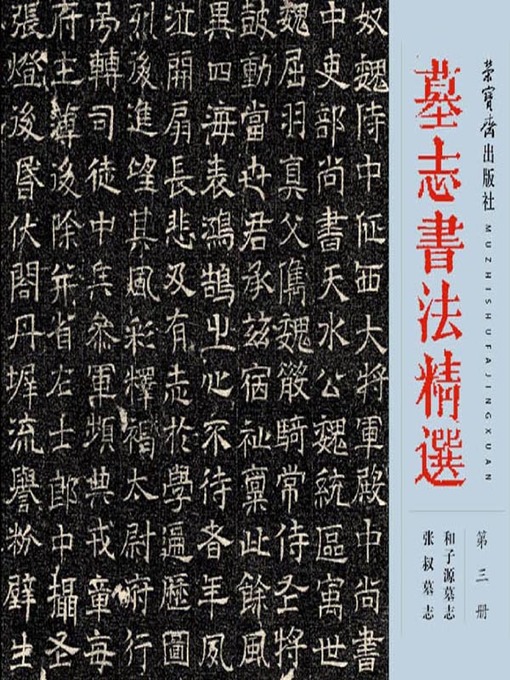 榮寳齋出版社
MUZHISHUFAJINGXUAN
墓志書法精選
第三册
和子源墓志
张叔墓志
奴魏侍中征西大將軍殿中尚書
中吏部尚書天水公魏統區寓世
魏屈羽真父儁魏散騎常侍圣將
鼓動當世君承兹宿祉稟此餘風
異四海表鴻鵠之心不待者年夙
泣開扃長悲及有志於學遍歷圖
列後進望其風彩釋褐太尉府行
轉司徒中兵參軍頻典戎章每
府主薄後除并省右士郎中攝圣
張燈後昬伏閤丹墀流譽粉壁生